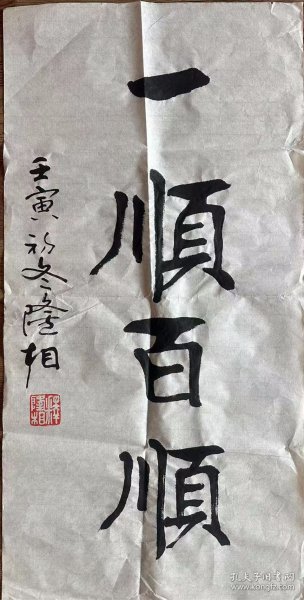 一順百順
壬寅初冬隆相
孔夫子旧书网